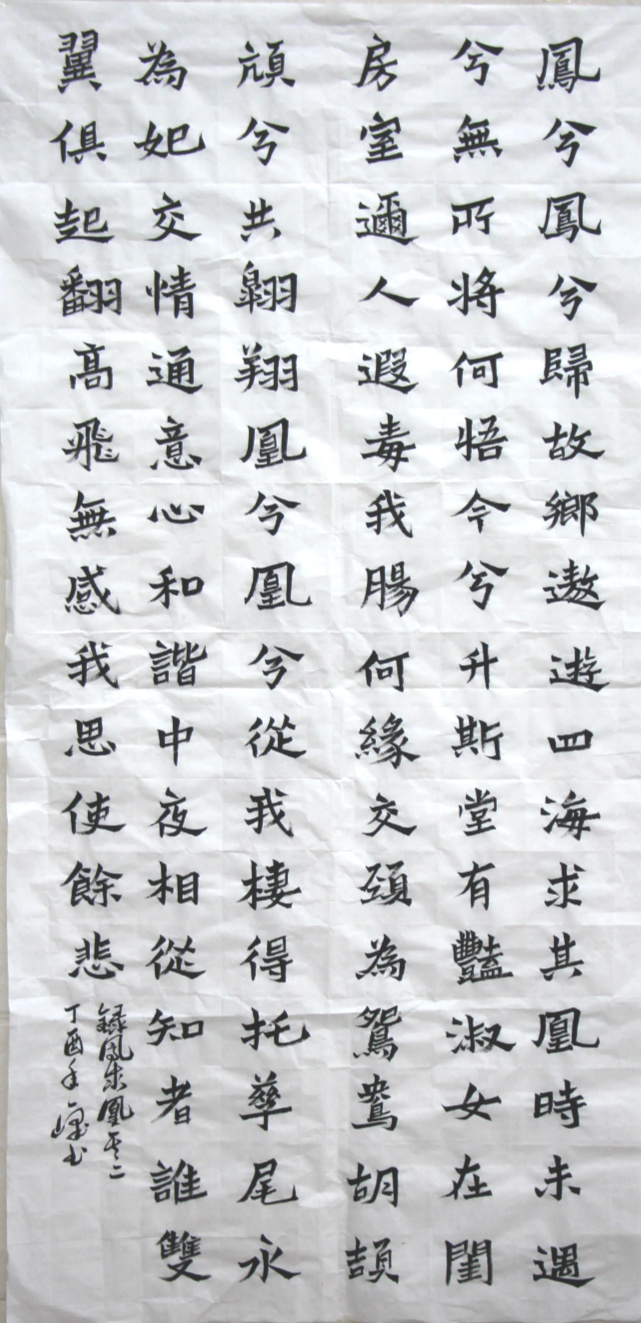 鳳兮鳳兮歸故鄉遨遊四海求其凰時未遇
兮無所將何悟今兮升斯堂有豔淑女在閨
房室邇人遐毒我腸何緣交頸為鴛鴦胡頡
頏兮共翱翔凰兮凰兮從我棲得托孳尾永
為妃交情通意心和諧中夜相從知者誰雙
翼俱起翻高飛無感我思使餘悲
錄鳳求凰
丁酉年